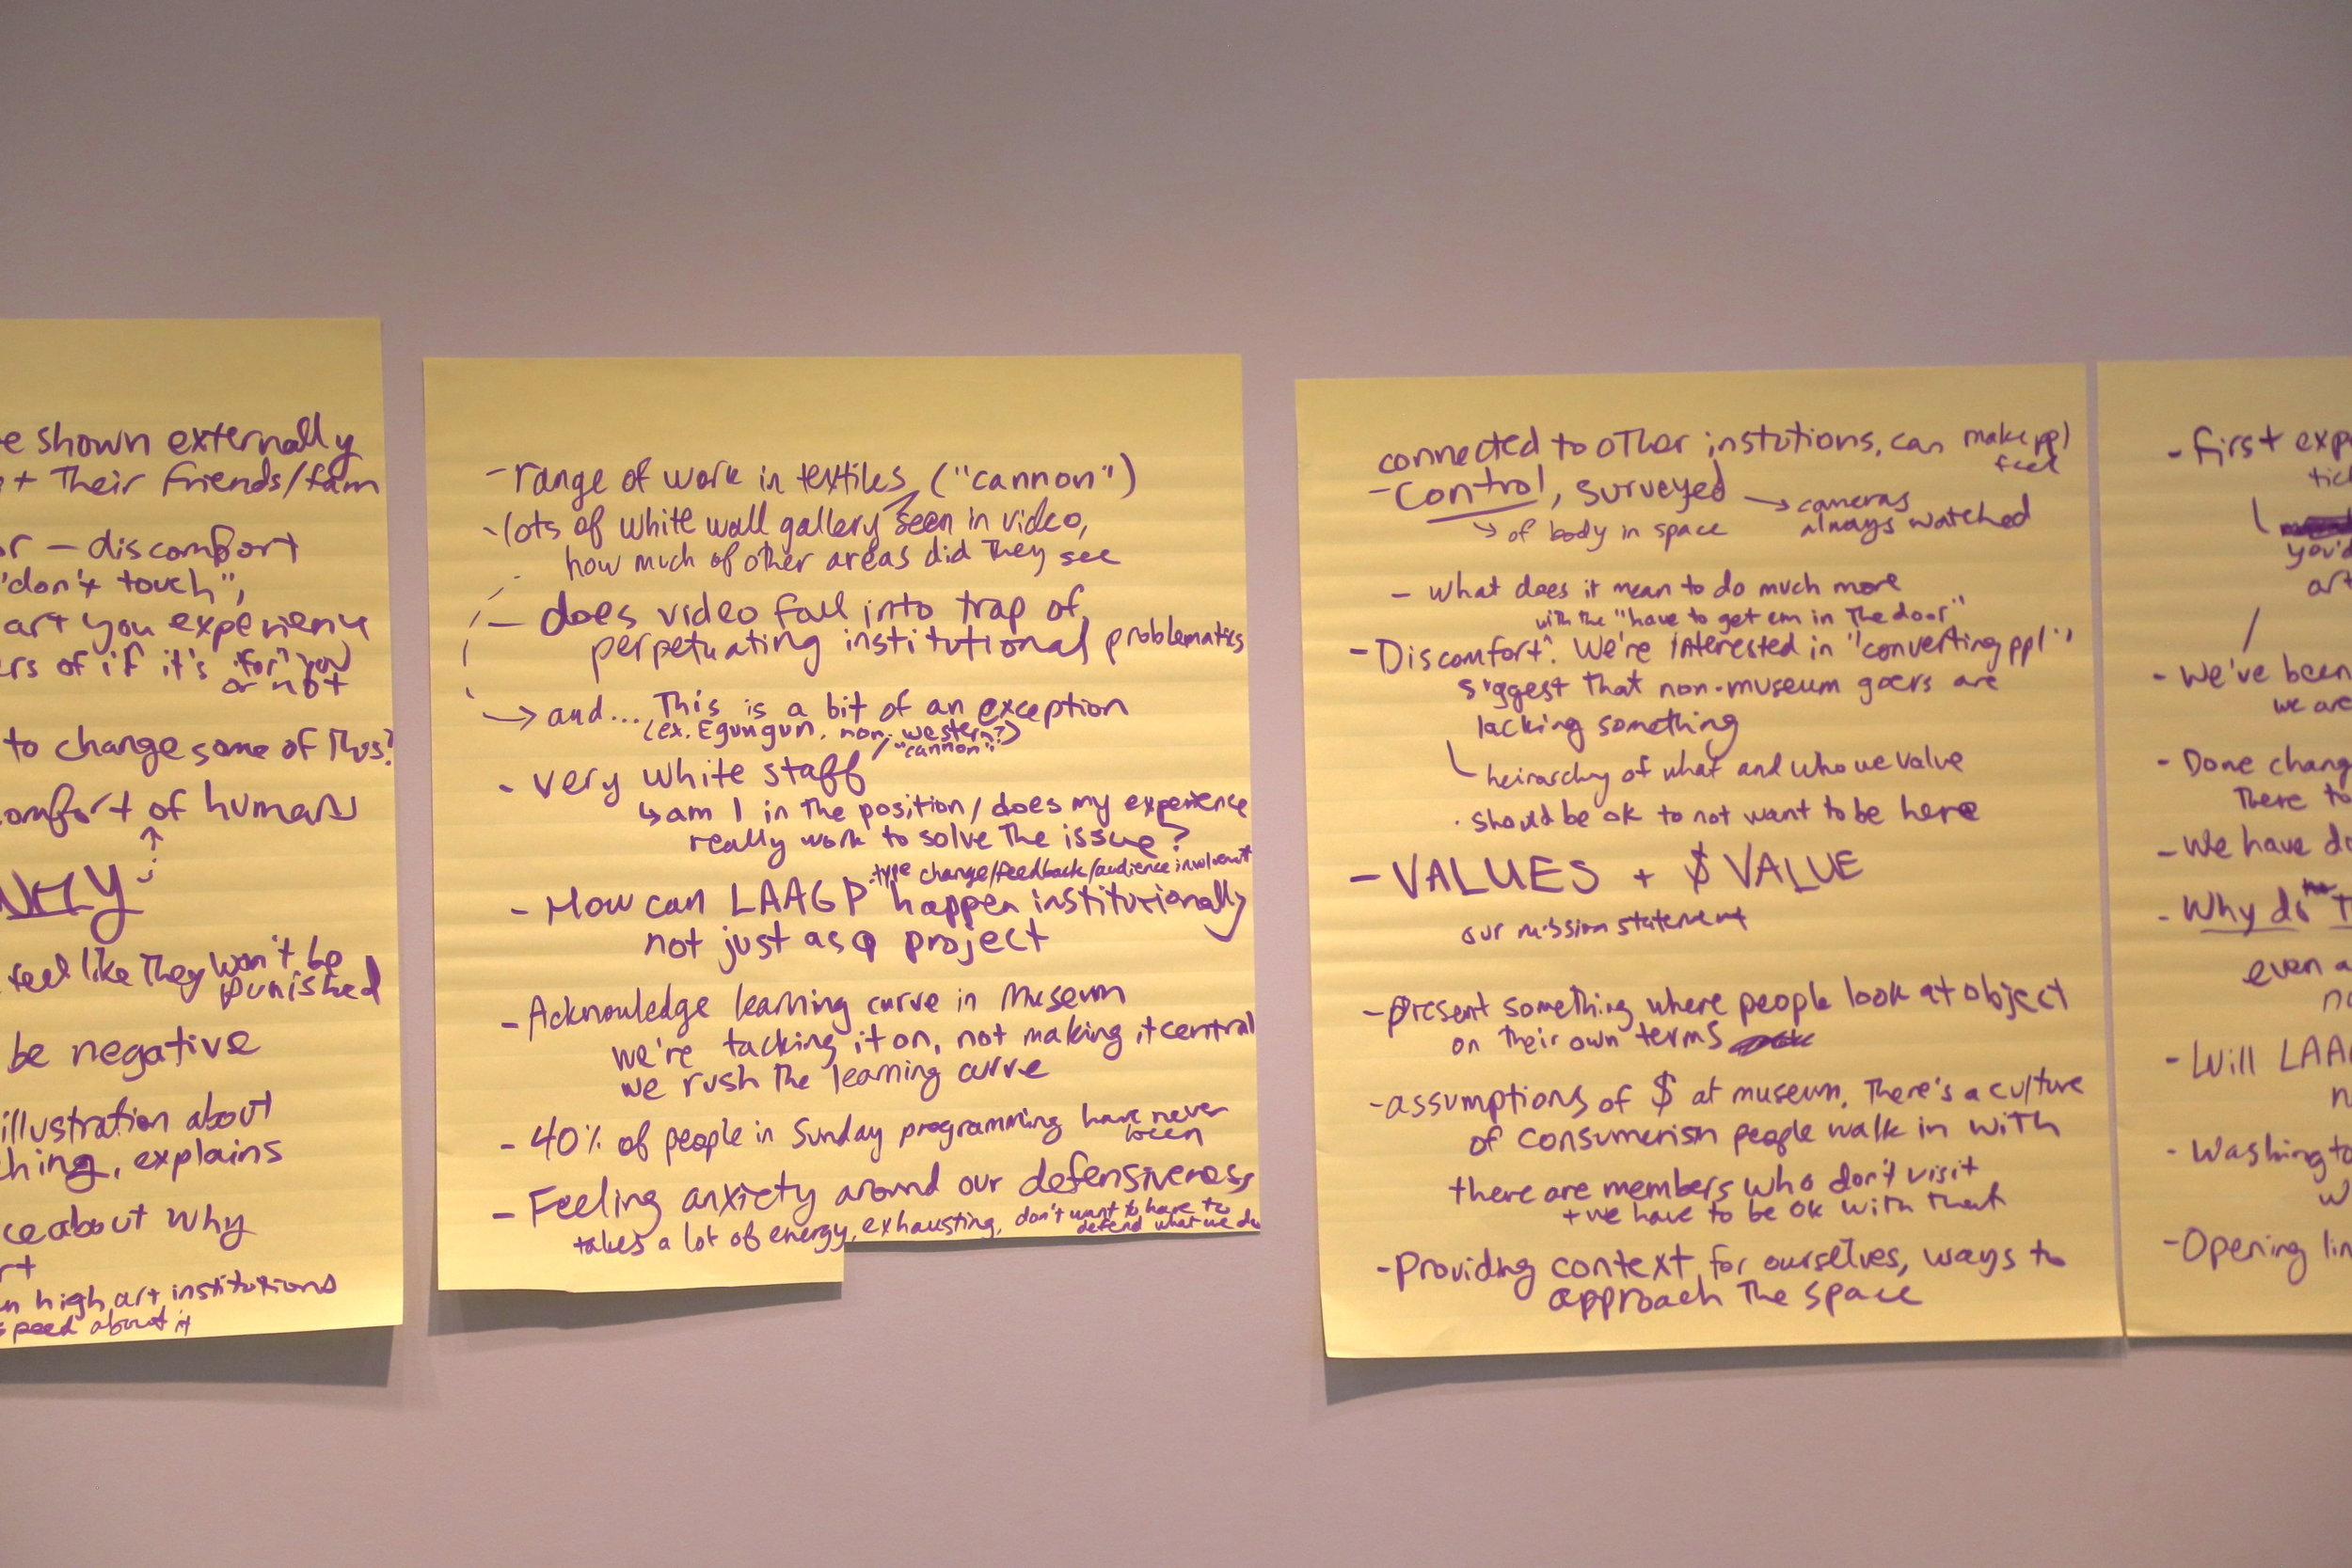 e shown externally
+ Their friends/fam
or - discomfort
"don't touch",
art you experience
ers of if it's "for" you
or not
to change some of this?
comfort of humans
WHY
feel like They won't be
punished
be negative
illustration about
thing, explains
ce about why
rt
n high art institutions
speed about it
- range of work in textiles ("cannon")
- lots of white wall gallery seen in video,
how much of other areas did They see
- does video fall into trap of
perpetuating institutional problematics
→ and... This is a bit of an exception
(ex. Egungun, non-western?)
/"cannon"
- very white staff
↳ am I in the position/does my experience
really work to solve the issue?
type change/feedback/audience involvemnt
- How can LAAGP happen institutionally
not just as a project
- Acknowledge learning curve in museum
we're tacking it on, not making it central
we rush the learning curve
- 40% of people in Sunday programming have never
been
- Feeling anxiety around our defensiveness
takes a lot of energy, exhausting, don't want to have to
defend what we do
connected to other instutions, can make ppl
feel
- Control, surveyed → cameras
always watched
↳ of body in space
- what does it mean to do much more
with the "have to get em in the door"
- Discomfort: We're interested in "converting ppl"
suggest that non-museum goers are
lacking something
heirarchy of what and who we value
· should be ok to not want to be here
- VALUES + $ VALUE
our mission statement
- present something where people look at object
on their own terms
- assumptions of $ at museum, There's a culture
of consumerism people walk in with
there are members who don't visit
+ we have to be ok with that
- Providing context for ourselves, ways to
approach the space
- first exp
tic
you'd
art
- We've been
we are
- Done chang
There to
- We have do
- Why do T
even a
- Will LAA
- Washingto
w
- Opening lin